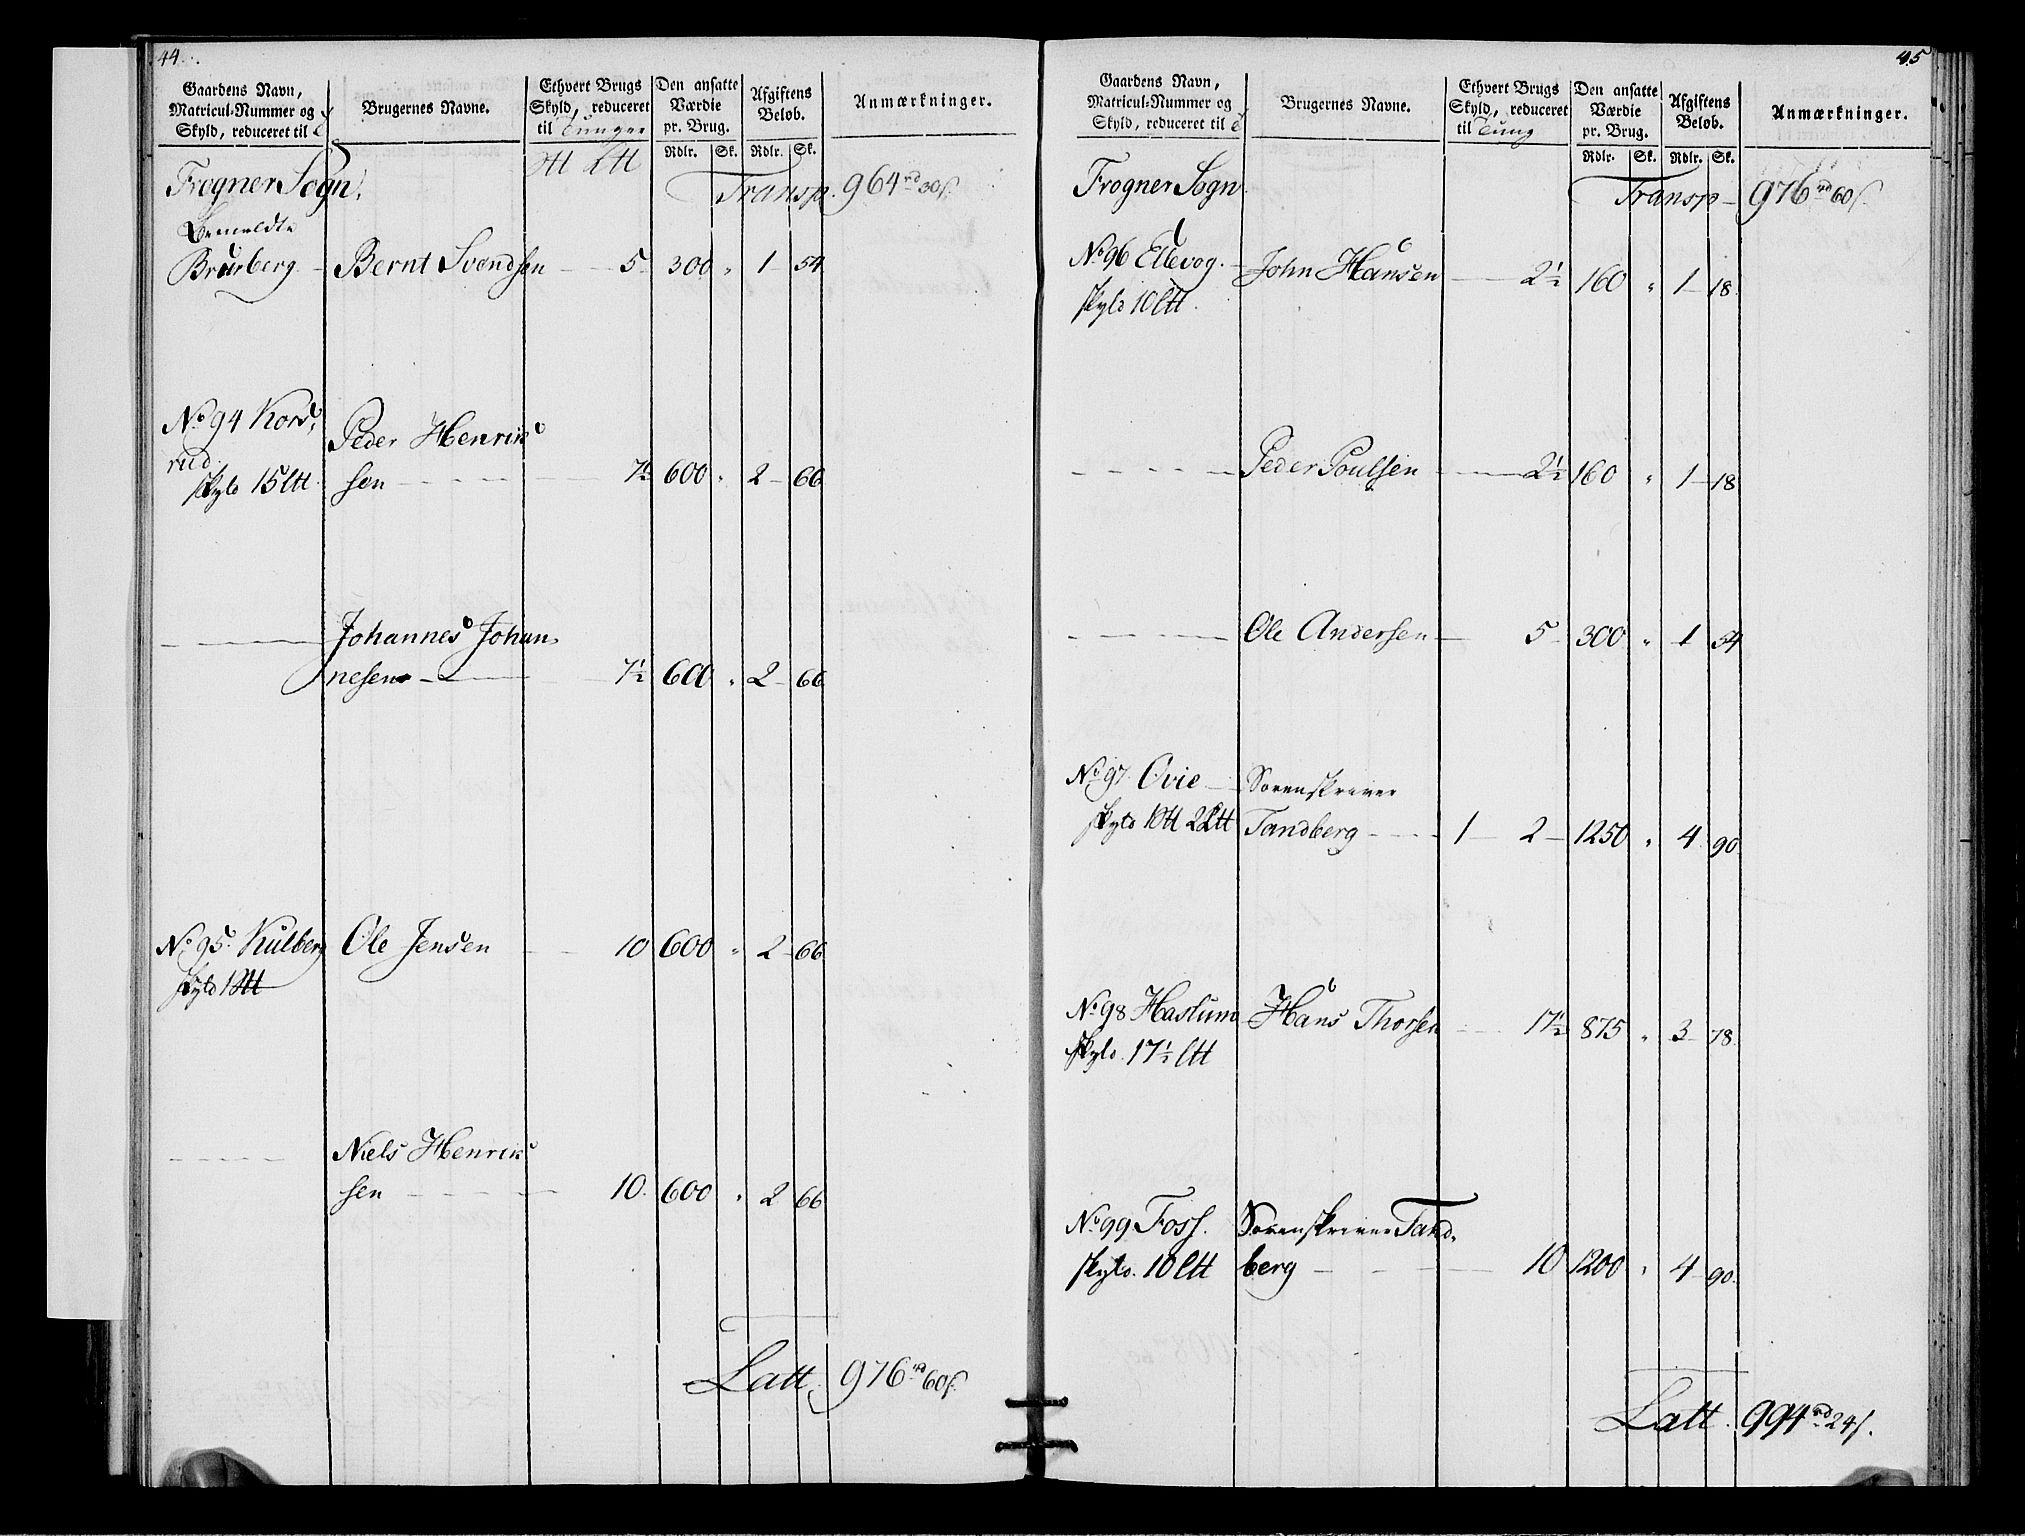 44.
Gaardens Navn,
Matricul-Nummer og
Skyld, reduceret til
Brugernes Navne.
Ethvert Brugs
Skyld, reduceret
til Tunger
Den ansatte
Værdie
pr. Brug.
Rdlr. Sk.
Afgiftens
Beløb.
Rdlr. Sk.
Anmærkninger.
Frogner Sogn. Transp. 964rd 30s.
Bemeldte
Brurberg Bernt Svendsen 5 300 " 1 54
No 94 Kors,
rud
skyld 15 Ltt
Peder Henrik
sen 7½ 600 " 2 66
Johannes Johan,
nesen 7½ 600 " 2 66
No 95. Kulberg Ole Jensen 10 600 " 2 66
skyld 1 Stt
Niels Henrik
sen 10. 600 " 2 66
Latt. 976rd 60s.
45
Gaardens Navn,
Matricul-Nummer og
Skyld, reduceret til
Brugernes Navne.
Ethvert Brugs
Skyld, reduceret
til Tung
Den ansatte
Værdie
pr. Brug.
Rdlr. Sk.
Afgiftens
Beløb.
Rdlr. Sk.
Anmærkninger.
Frogner Sogn Transp 976rd 60s.
No 96 Ellevog. John Hansen 2½ 160 " 1 18
skyld 10 Ltt.
Peder Poulsen 2½ 160 " 1 18
Ole Andersen 5 300 " 1 54
No 97. Ovie Sorenskriver
skyld 1 Stt 2 Ltt Tandberg 1 2 1250 " 4 90
No 98 Haslum Hans Thorsen 17½ 875 " 3 78
skyld. 17½ Ltt
No 99 Foss. Sorenskriver Tand,
skyld. 10 Ltt berg 10 1200 " 4 90.
Latt. 994rd 24s.